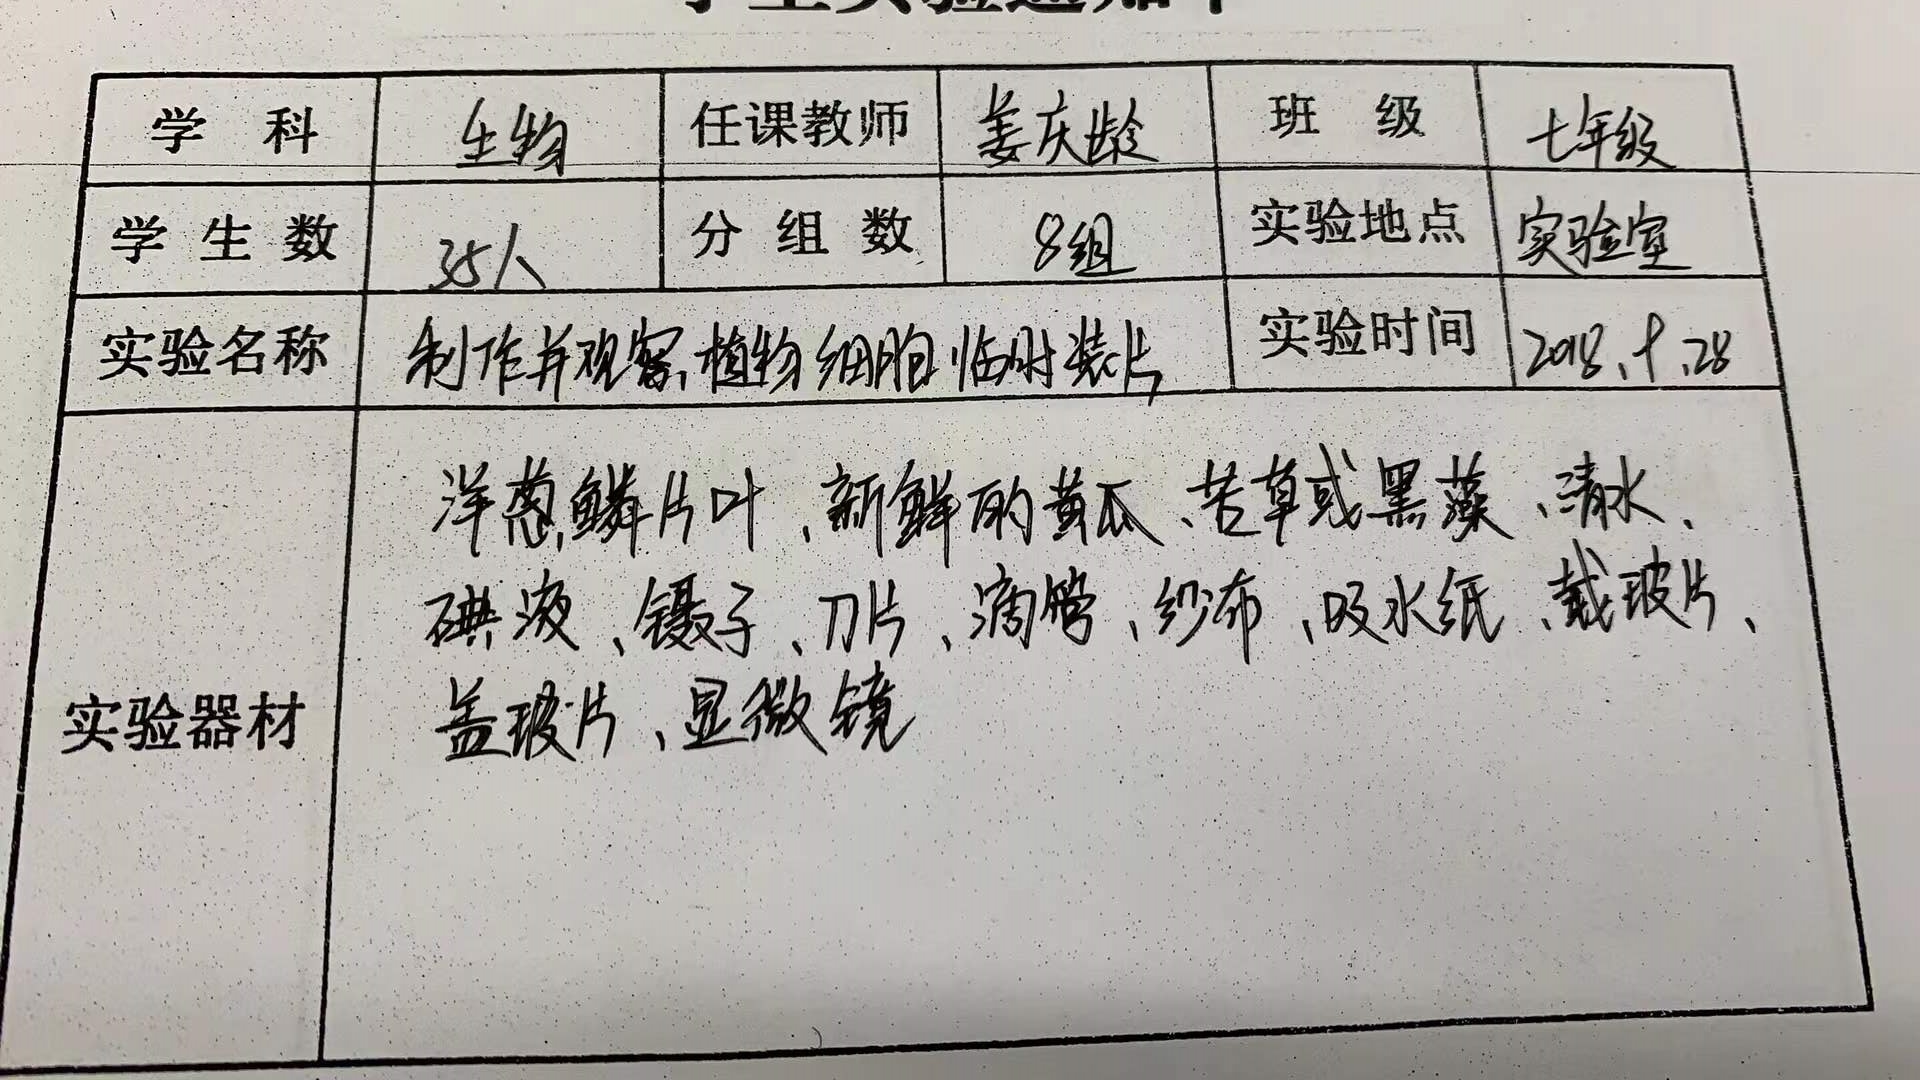 学生实验通知单
学科 生物 任课教师 姜庆龄 班级 七年级
学生数 35人 分组数 8组 实验地点 实验室
实验名称 制作并观察植物细胞临时装片 实验时间 2018、9、28
洋葱鳞片叶、新鲜的黄瓜、苦草或黑藻、清水、
碘液、镊子、刀片、滴管、纱布、吸水纸、戴玻片、
实验器材 盖玻片、显微镜